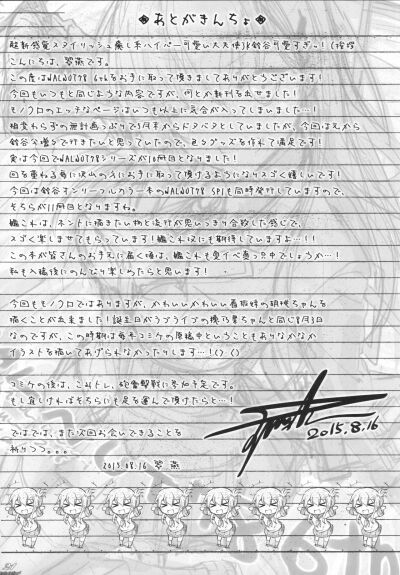 あとがきんちょ
超新感覚スタイリッシュ癒し系ハイパー可愛い大天使JK鈴谷可愛すぎッ！(挨拶
こんにちは、翠燕です。
この度はWALNOT78 6y6をお手に取って頂きましてありがとうございます！
今回もいつもと同じような内容ですが、何とか新刊を出せました！
モノクロのエッチなページはいつも以上に気合が入ってしまいました…！
相変わらずの無計画っぷりで5月末からドタバタとしていましたが、今回は元から
鈴谷分増々で行きたいと思っていたので、色々グッズを作れて満足です！
実は今回でWALNOT78シリーズが10冊目となりました！
回を重ねる毎に沢山の人にお手に取って頂けるようになりスゴく嬉しいです！
今回は鈴谷オンリーフルカラー本のWALNOT78 SP1も同時発行していますので、
そちらが11冊目となりますね。
艦これは、ホントに描きたい物と流行が思いっきり合致した感じで、
スゴく楽しませてもらっています！艦これ改にも期待していますよ…！！
この本が皆さんのお手元に届く頃は、艦これも夏イベ真っ只中でしょうか…！
私も入稿後にのんびり楽しめたらと思います！
今回もモノクロではありますが、かわいいかわいい看板娘の胡桃ちゃんを
描くことが出来ました！誕生日がラブライブの穂乃果ちゃんと同じ8月3日
なのですが、この時期は毎年コミケの原稿中ということもありなかなか
イラストを描いてあげられなかったりします…！() ()
コミケの後は、こみトレ、砲雷撃戦に参加予定です。
もし宜しければそちらにも足を運んで頂けたらと…！
ではでは、また次回お会いできることを
祈りつつ。。。
2015.08.16 翠燕
2015.8.16